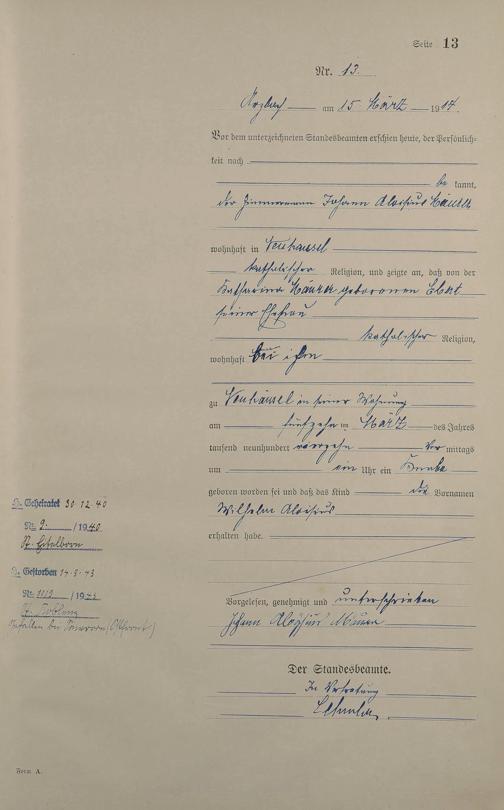 Seite 13
Nr. 13.
Arzbach am 15 März 1914.
Vor dem unterzeichneten Standesbeamten erschien heute, der Persönlich-
keit nach
be kannt,
der Zimmermann Johann Aloisius
wohnhaft in Neuhäusel
katholischer Religion, und zeigte an, daß von der
Katharina geborenen
seiner Ehefrau
katholischer Religion,
wohnhaft bei ihm
zu Neuhäusel in seiner Wohnung
am fünfzehn ten März des Jahres
tausend neunhundert vierzehn Vor mittags
um ein Uhr ein Knabe
geboren worden sei und daß das Kind die Vornamen
Wilhelm Aloisius
erhalten habe.
Geheiratet 30.12.40
Nr. 9. /1940
St. Eitelborn
Gestorben 14.3.43
Nr. /1943
St. Koblenz
Gefallen bei (Ostfront)
Vorgelesen, genehmigt und unterschrieben
Johann Aloysius
Der Standesbeamte.
In Vertretung
Form A.